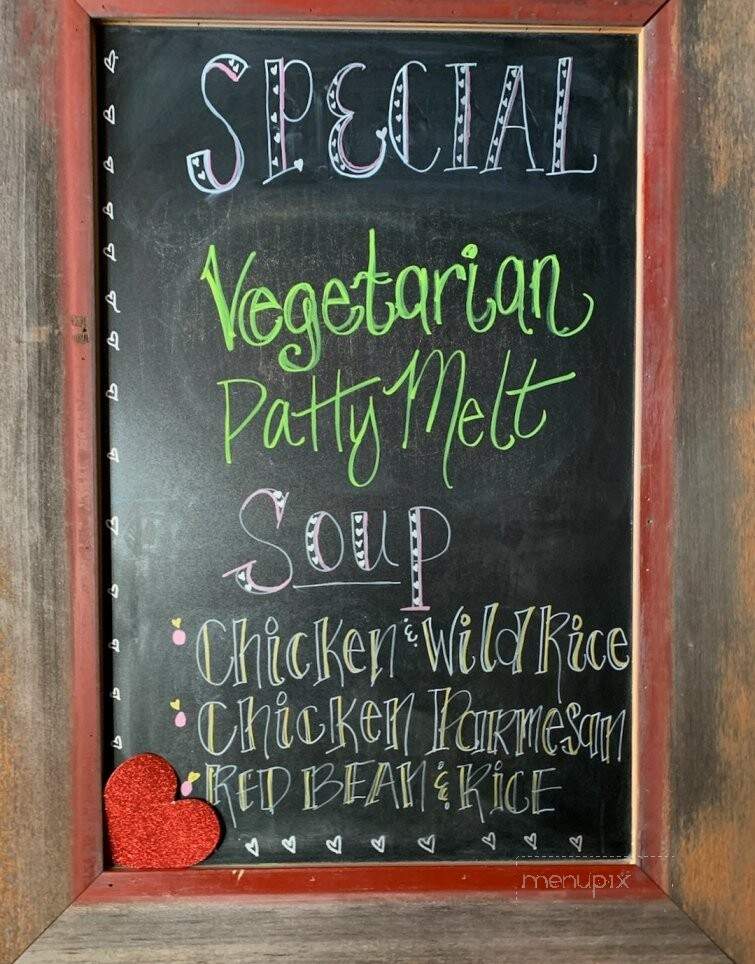 SPECIAL
Vegetarian
Patty Melt
Soup
Chicken & Wild Rice
Chicken Parmesan
RED BEAN & RICE
menupix